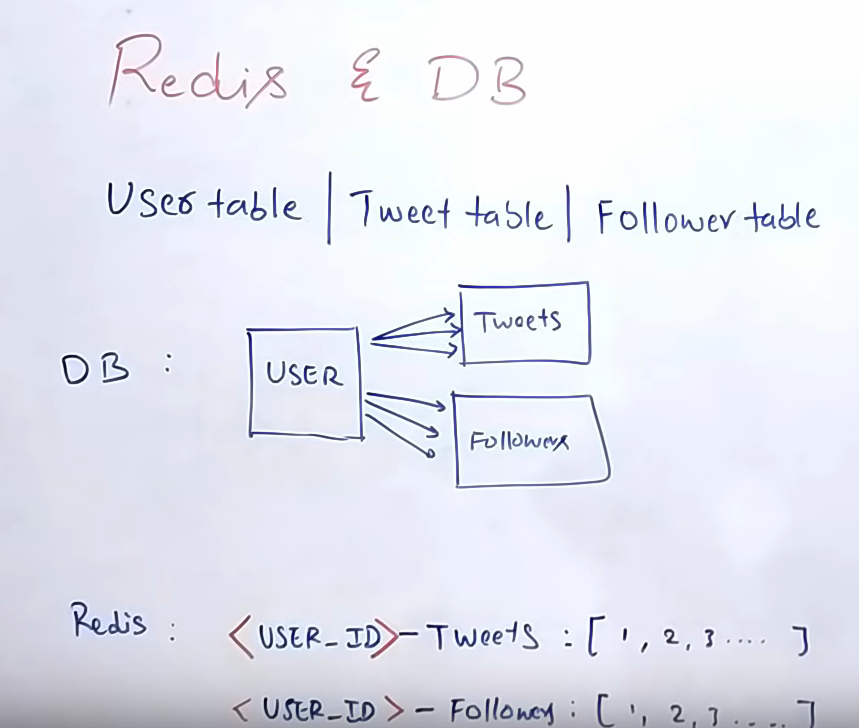 Redis & DB
User table | Tweet table | Follower table
Tweets
DB : USER
Followers
Redis : <USER_ID>- Tweets : [ 1, 2, 3 .... ]
<USER_ID> - Followers : [ 1, 2, 3 .... ]